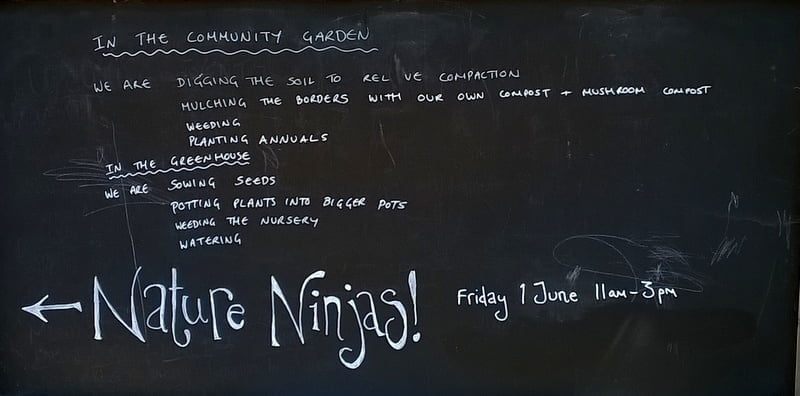 IN THE COMMUNITY GARDEN
WE ARE DIGGING THE SOIL TO REL VE COMPACTION
MULCHING THE BORDERS WITH OUR OWN COMPOST + MUSHROOM COMPOST
WEEDING
PLANTING ANNUALS
IN THE GREENHOUSE
WE ARE SOWING SEEDS
POTTING PLANTS INTO BIGGER POTS
WEEDING THE NURSERY
WATERING
← Nature Ninjas! Friday 1 June 11am-3pm